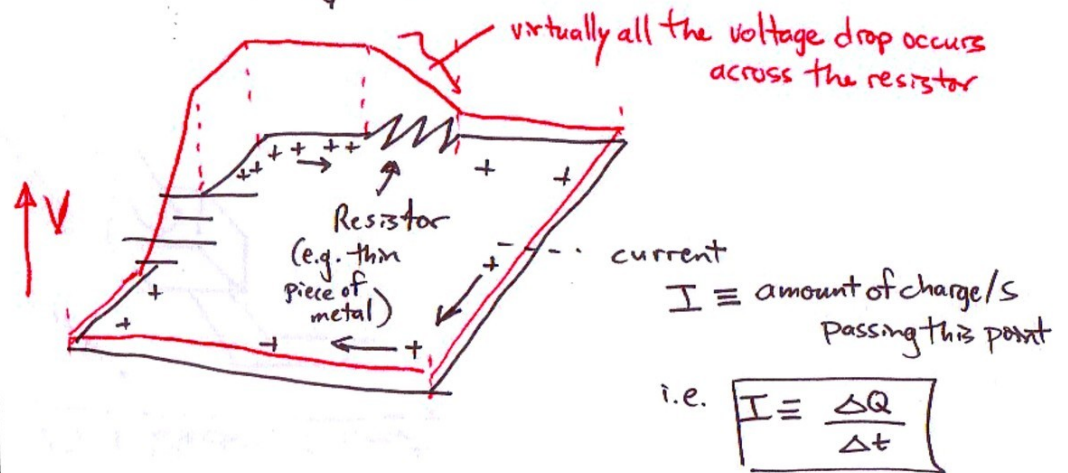 virtually all the voltage drop occurs
across the resistor
V
Resistor
(e.g. thin
piece of
metal)
current
I ≡ amount of charge/s
passing this point
i.e. I ≡ ΔQ/Δt